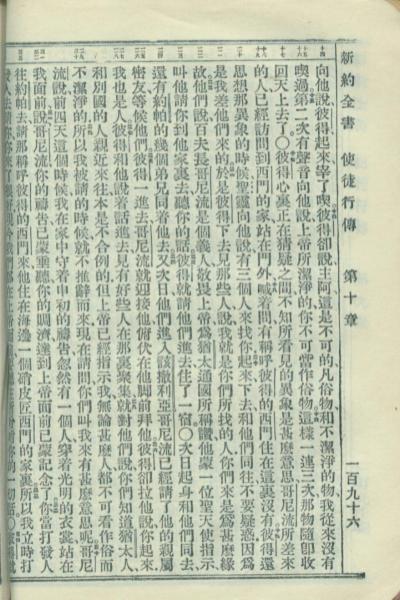 新約全書 使徒行傳 第十章 一百九十六
向他說彼得起來宰了喫彼得卻說主阿這是不可的凡俗物和不潔淨的物我從來沒有
喫過第二次有聲音向他說上帝所潔淨的你不可當作俗物這樣一連三次那物隨卽收
回天上去了〇彼得心裏正在猜疑之間不知所看見的異象是甚麼意思哥尼流所差來
的人已經訪問到西門的家站在門外喊着問有稱呼彼得的西門住在這裏沒有彼得還
思想那異象的時候聖靈向他說有三個人來找你起來下去和他們同往不要疑惑因爲
是我差他們來的於是彼得下去見那些人說我就是你們所找的人你們來是爲甚麼緣
故他們說百夫長哥尼流是個義人敬畏上帝爲猶太通國所稱讚他蒙一位聖天使指示
叫他請你到他家裏去聽你的話彼得就請他們進去住了一宿〇次日起身和他們同去
還有約帕的幾個弟兄同着他去又次日他們進入該撒利亞哥尼流已經請了他的親屬
密友等候他們彼得一進去哥尼流就迎接他俯伏在他腳前拜他彼得卻拉他說你起來
我也是人彼得和他說着話進去見有好些人在那裏聚集就對他們說你們知道猶太人
和別國的人親近來往本是不合例的但上帝已經指示我無論甚麼人都不可看作俗而
不潔淨的所以我被請的時候就不推辭而來現在請問你們叫我來有甚麼意思呢哥尼
流說前四天這個時候我在家中守着申初的禱告忽然有一個人穿着光明的衣裳站在
我面前說哥尼流你的禱告已蒙垂聽你的賙濟達到上帝面前已蒙記念了你當打發人
往約帕去請那稱呼彼得的西門來他住在海邊一個硝皮匠西門的家裏所以我立時打